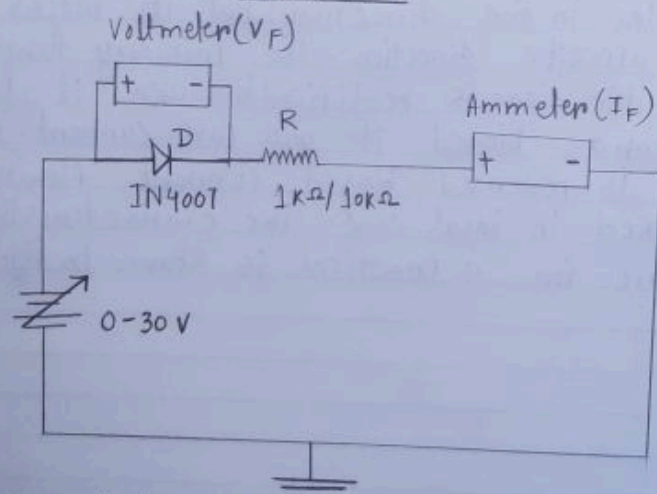 Voltmeter (VF)
+ -
D
R
Ammeter (IF)
+ -
IN4007
1KΩ/10KΩ
0-30 V